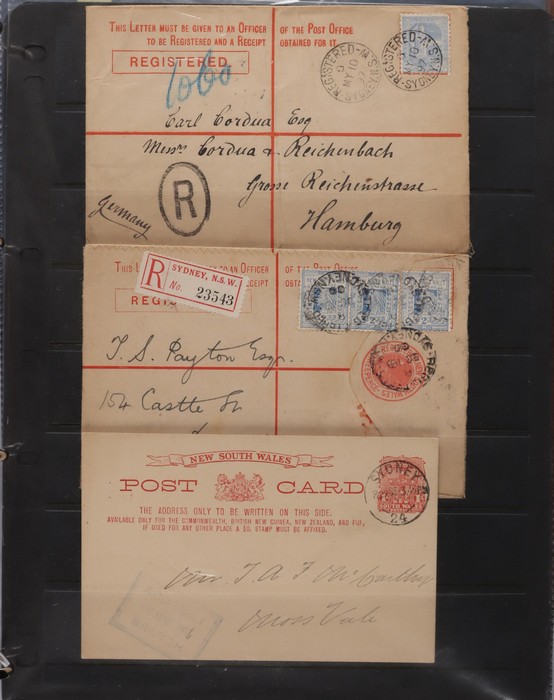 THIS LETTER MUST BE GIVEN TO AN OFFICER OF THE POST OFFICE
TO BE REGISTERED AND A RECEIPT OBTAINED FOR IT
REGISTERED
1060
REGISTERED
MY 10
REGISTERED
Carl Cordua Esq
Messrs Cordua & Reichenbach
Grosse Reichenstrasse
Hamburg
Germany
R
THIS LETTER
R
SYDNEY, N.S.W.
No. 23543
REG
T. S. Payton Esqr.
154 Castle St
NEW SOUTH WALES
POST CARD
THE ADDRESS ONLY TO BE WRITTEN ON THIS SIDE.
AVAILABLE ONLY FOR THE COMMONWEALTH, BRITISH NEW GUINEA, NEW ZEALAND, AND FIJI,
IF USED FOR ANY OTHER PLACE A 1D. STAMP MUST BE AFFIXED.
SYDNEY
24
McCarthy
Moss Vale